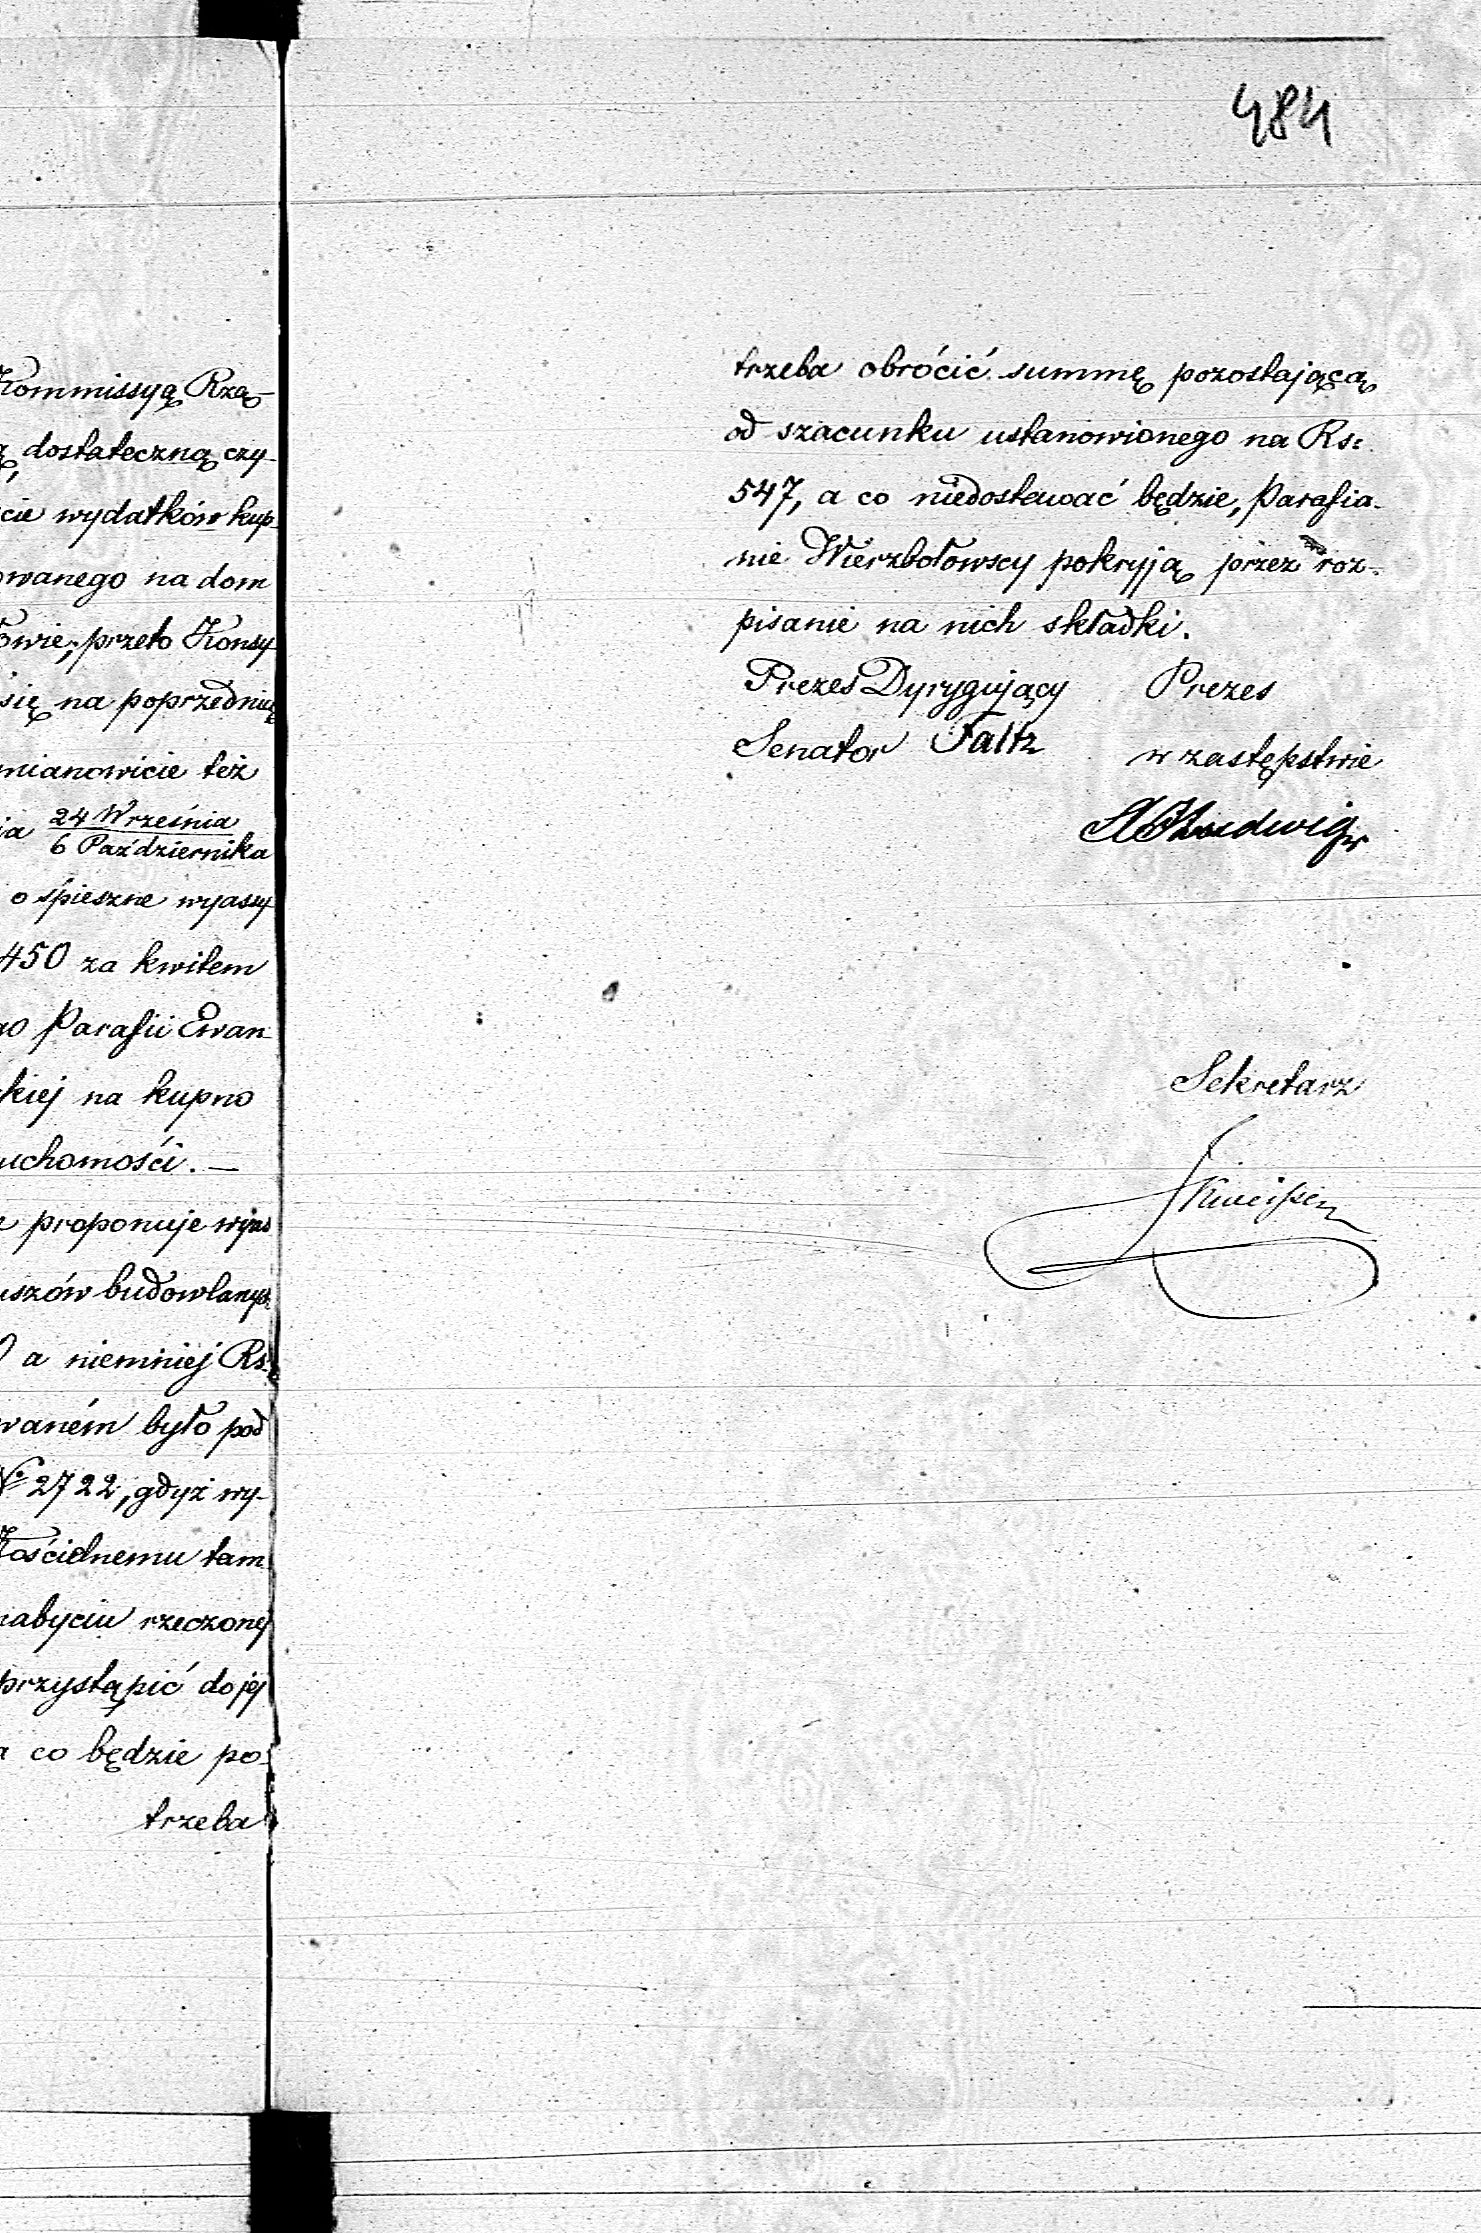 Kommissyą Rzą-
dostateczną czy-
cie wydatków kup-
owanego na dom
owie, przeto Konsy-
się na poprzednią
mianowicie też
ia 24 Września
6 Października
o śpieszne wyassy-
450 za kwitem
go Parafii Ewan-
kiej na kupno
uchomości. —
proponuje wyas
uszów budowlanych
a niemniej Rs:
waném było pod
№ 2722, gdyż wy-
Kościelnemu tam
nabyciu rzeczonej
przystąpić do jej
a co będzie po-
trzeba
484
trzeba obrócić summę pozostającą
od szacunku ustanowionego na Rs:
547, a co niedostawać będzie, Parafia-
nie Wierzbołowscy pokryją przez roz-
pisanie na nich składki.
Prezes Dyrygujący Prezes
Senator Faltz w zastępstwie
Ludwig
Sekretarz